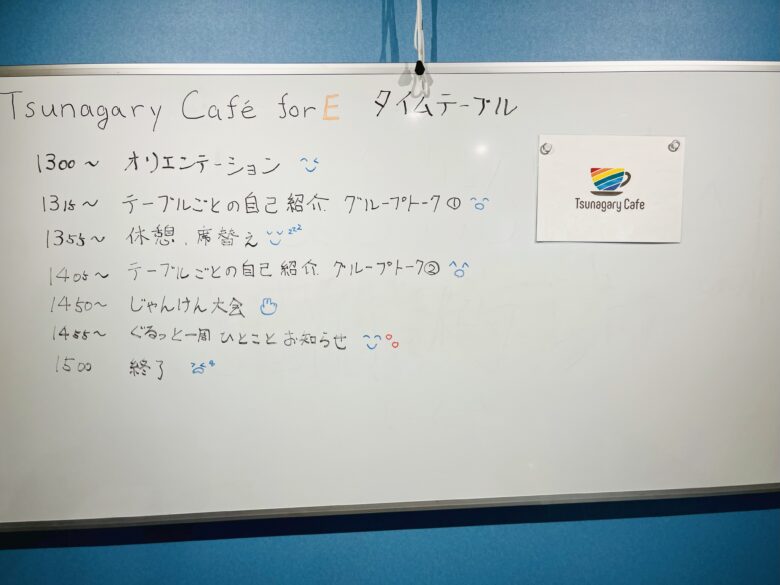 Tsunagary Café for E タイムテーブル
1300～ オリエンテーション
1315～ テーブルごとの自己紹介 グループトーク①
1355～ 休憩、席替え zzz
1405～ テーブルごとの自己紹介 グループトーク②
1450～ じゃんけん大会
1455～ ぐるっと一周 ひとこと お知らせ
1500 終了
Tsunagary Cafe